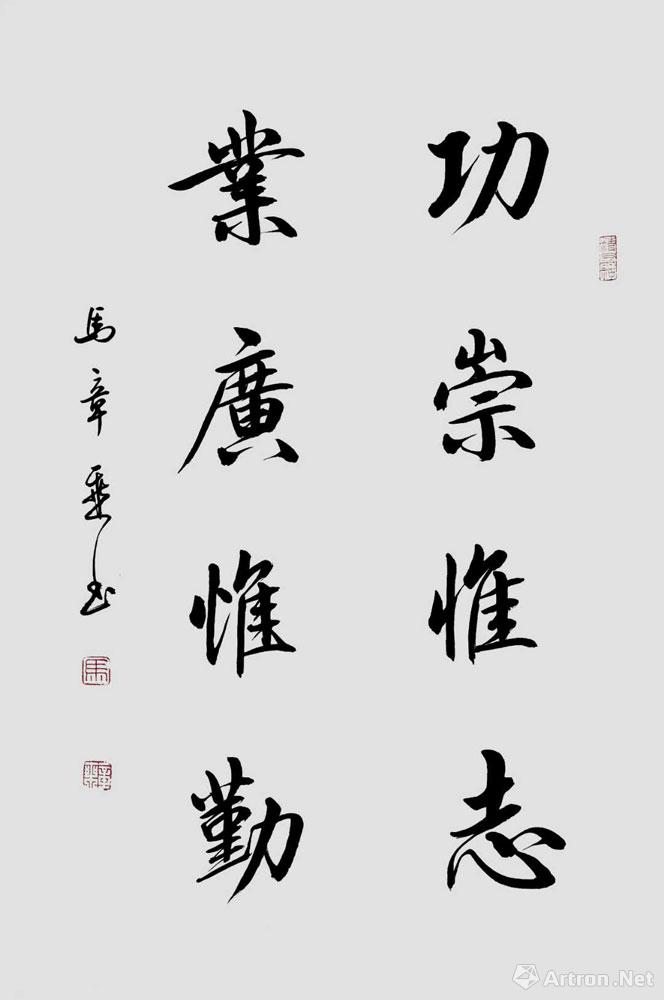 功崇惟志
業廣惟勤
馬章乘书
馬
Artron.Net